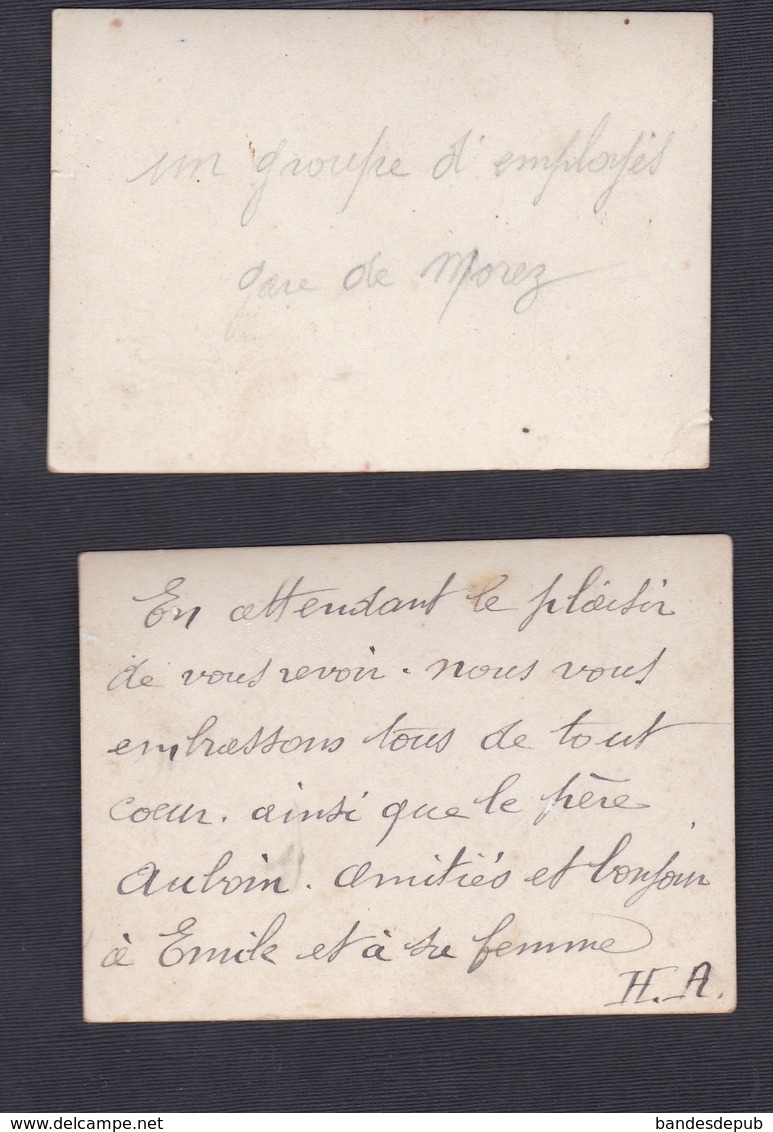 un groupe d'employés
gare de Morez
En attendant le plaisir
de vous revoir. nous vous
embrassons tous de tout
coeur. ainsi que le père
Auboin. amitiés et bonjour
à Emile et à sa femme
H. A.
www.delcampe.net
bandesdepub